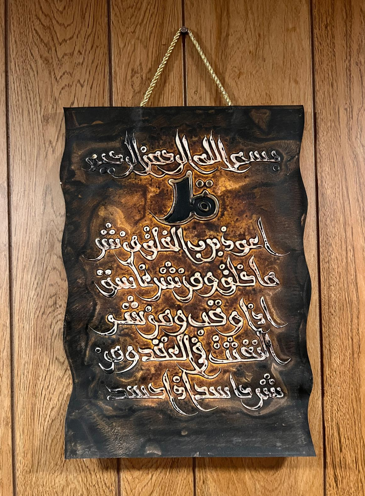 بسم الله الرحمن الرحيم
قل
أعوذ برب الفلق من شر
ما خلق ومن شر غاسق
إذا وقب ومن شر
النفثت في العقد ومن
شر حاسد إذا حسد